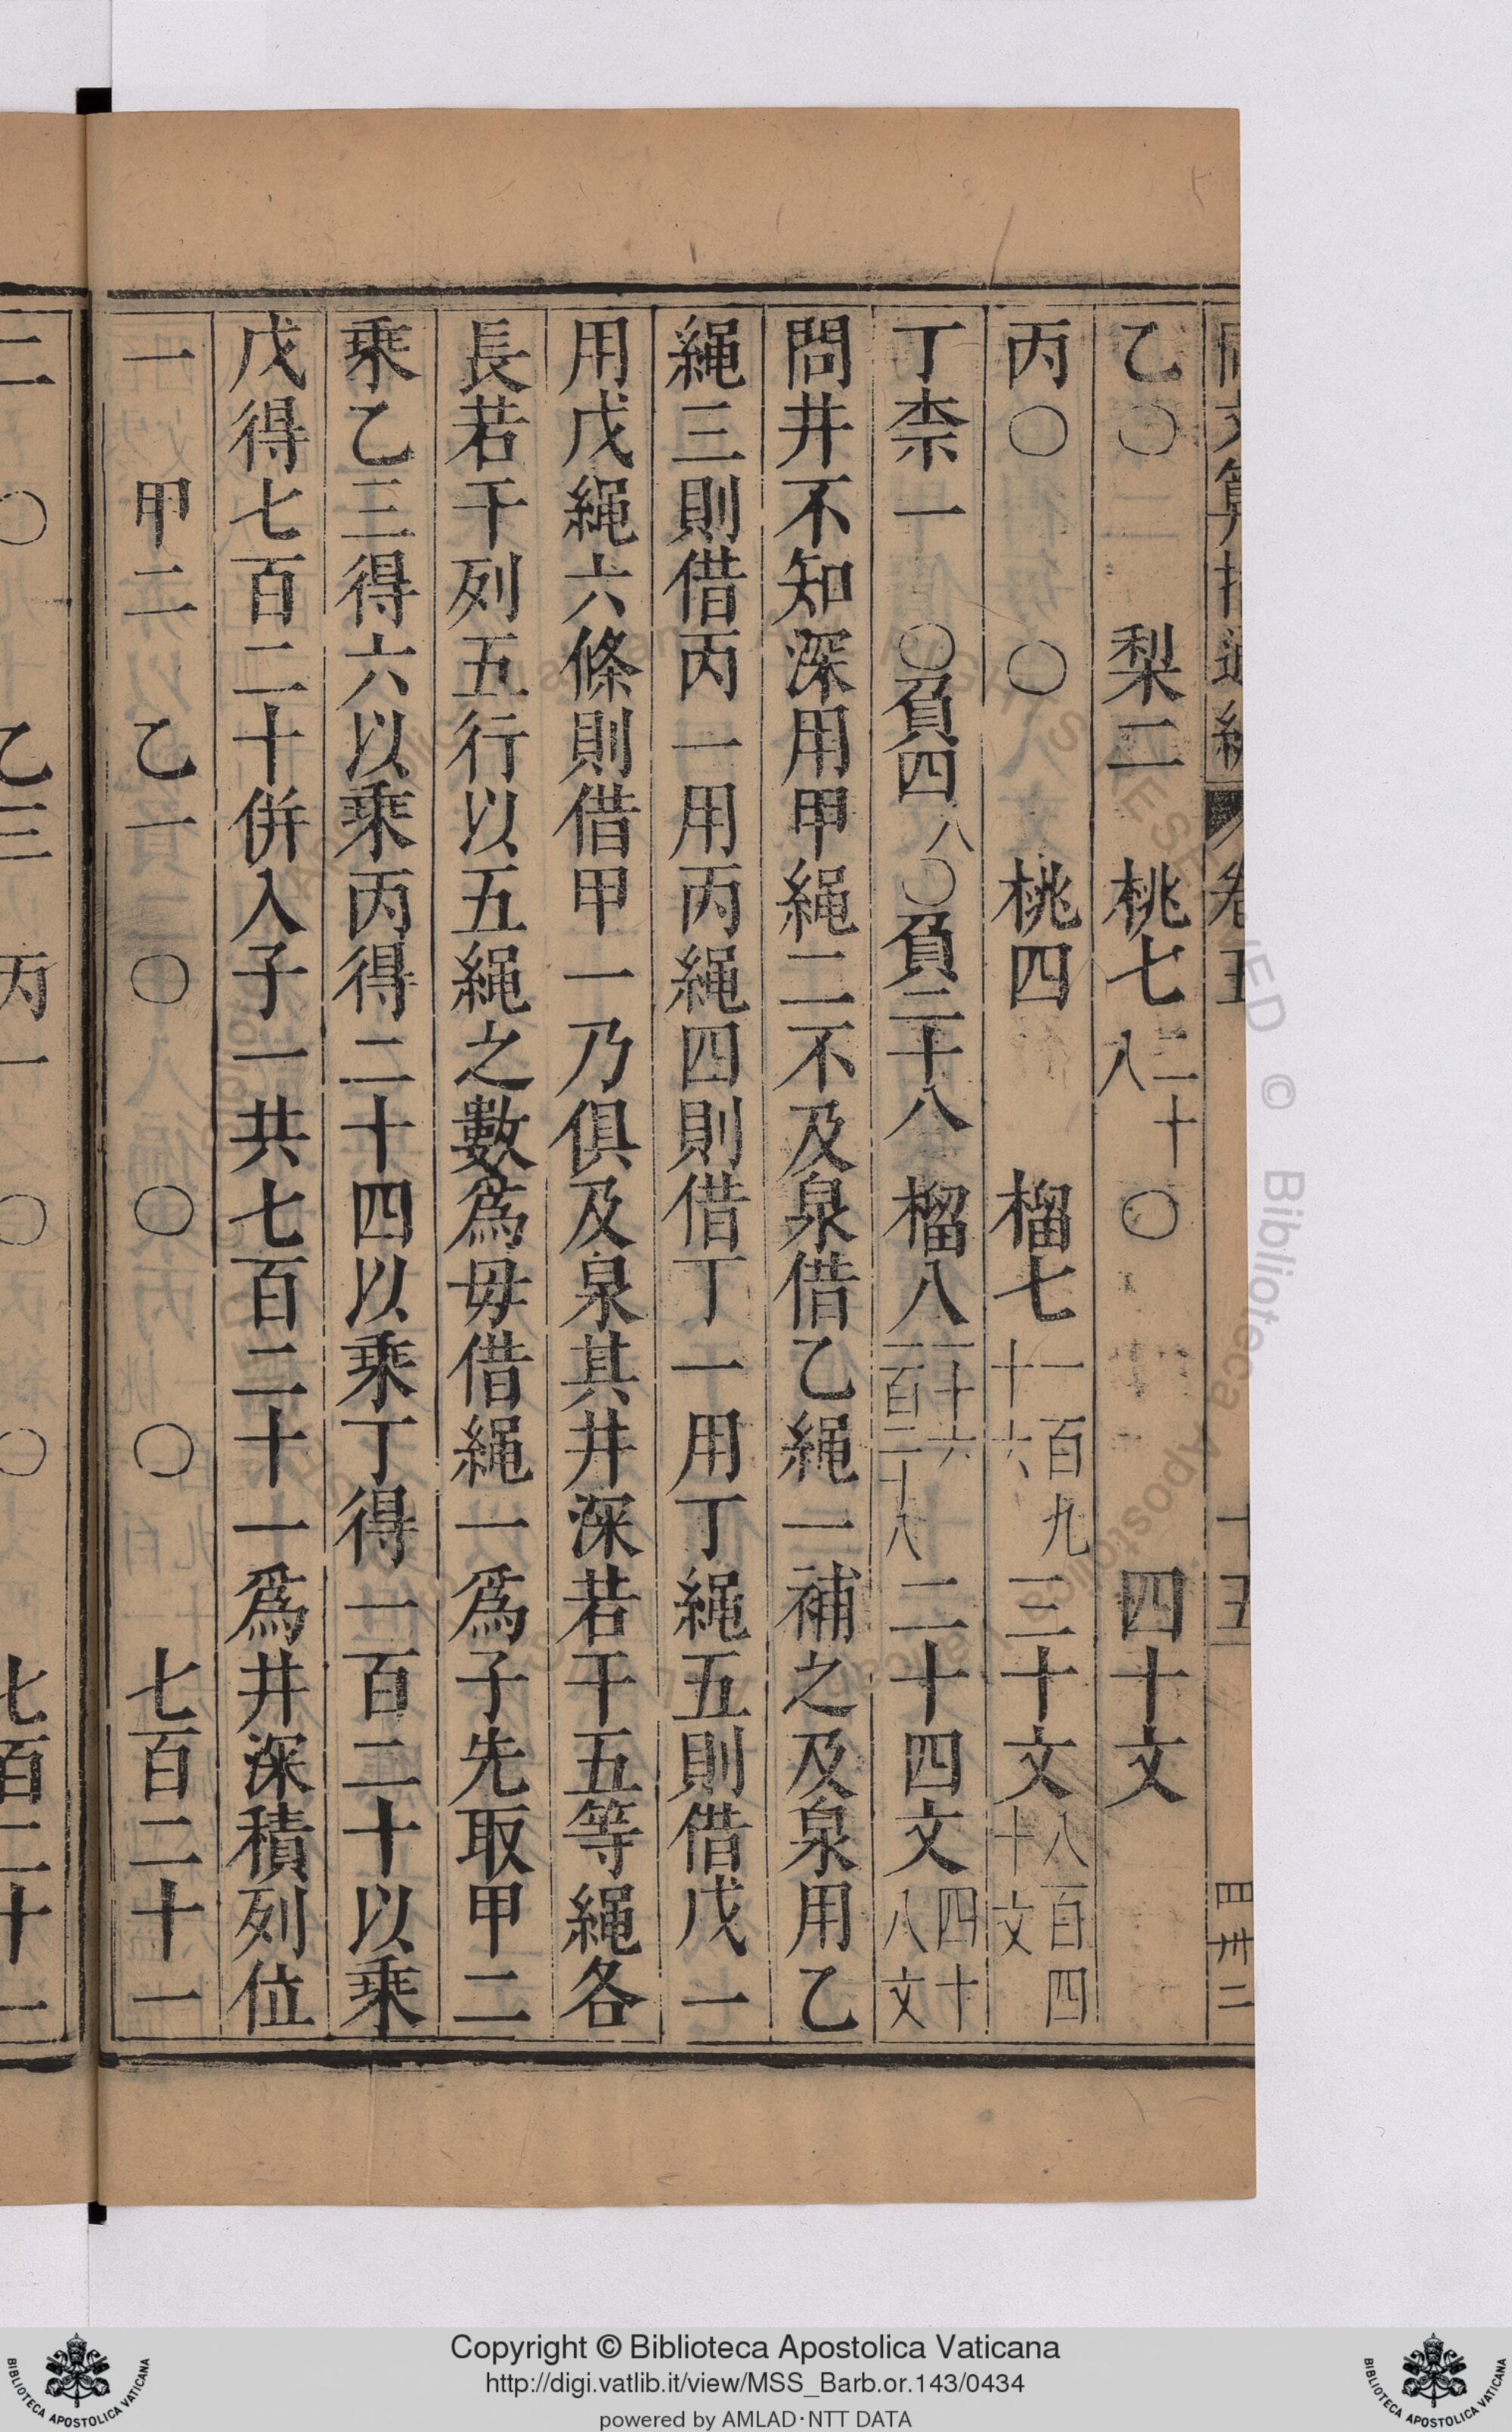 乙〇 梨二 桃七 二十八 〇 四十文
丙〇 〇 桃四 榴七 一百九十六 三十文 八百四十文
丁柰一 〇負四 八 〇負二十八 榴八 二十六 二百二十八 二十四文 四十八文
問井不知深用甲繩二不及泉借乙繩一補之及泉用乙
繩三則借丙一用丙繩四則借丁一用丁繩五則借戊一
用戊繩六條則借甲一乃俱及泉其井深若干五等繩各
長若干列五行以五繩之數爲毋借繩一爲子先取甲二
乘乙三得六以乘丙得二十四以乘丁得一百二十以乘
戊得七百二十併入子一共七百二十一爲井深積列位
一 甲二 乙一 〇 〇 〇 七百二十一
二 〇 乙三 丙一 〇 〇 七百二十一
Copyright © Biblioteca Apostolica Vaticana
http://digi.vatlib.it/view/MSS_Barb.or.143/0434
powered by AMLAD·NTT DATA
BIBLIOTECA APOSTOLICA VATICANA
BIBLIOTECA APOSTOLICA VATICANA